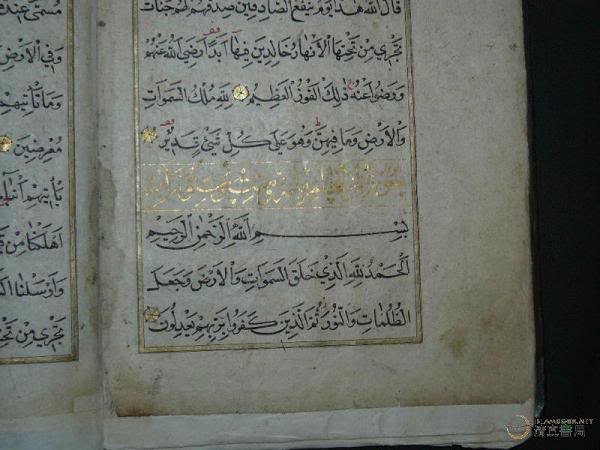 قَالَ اللهُ هَذَا يَوْمُ يَنْفَعُ الصَّادِقِينَ صِدْقُهُمْ لَهُمْ جَنَّاتٌ
تَجْرِي مِنْ تَحْتِهَا الْأَنْهَارُ خَالِدِينَ فِيهَا أَبَدًا رَضِيَ اللهُ عَنْهُمْ
وَرَضُوا عَنْهُ ذَلِكَ الْفَوْزُ الْعَظِيمُ لِلهِ مُلْكُ السَّمَوَاتِ
وَالْأَرْضِ وَمَا فِيهِنَّ وَهُوَ عَلَى كُلِّ شَيْءٍ قَدِيرٌ
بِسْمِ اللهِ الرَّحْمَنِ الرَّحِيمِ
اَلْحَمْدُ لِلهِ الَّذِي خَلَقَ السَّمَوَاتِ وَالْأَرْضَ وَجَعَلَ
الظُّلُمَاتِ وَالنُّورَ ثُمَّ الَّذِينَ كَفَرُوا بِرَبِّهِمْ يَعْدِلُونَ
مُسَمًّى
وَفِي الْأَرْضِ
وَمَا تَأْتِيهِمْ
مُعْرِضِينَ
يَأْتِيهِمْ
أَهْلَكْنَا مِنْ
وَأَرْسَلْنَا
تَجْرِي مِنْ
清真書局